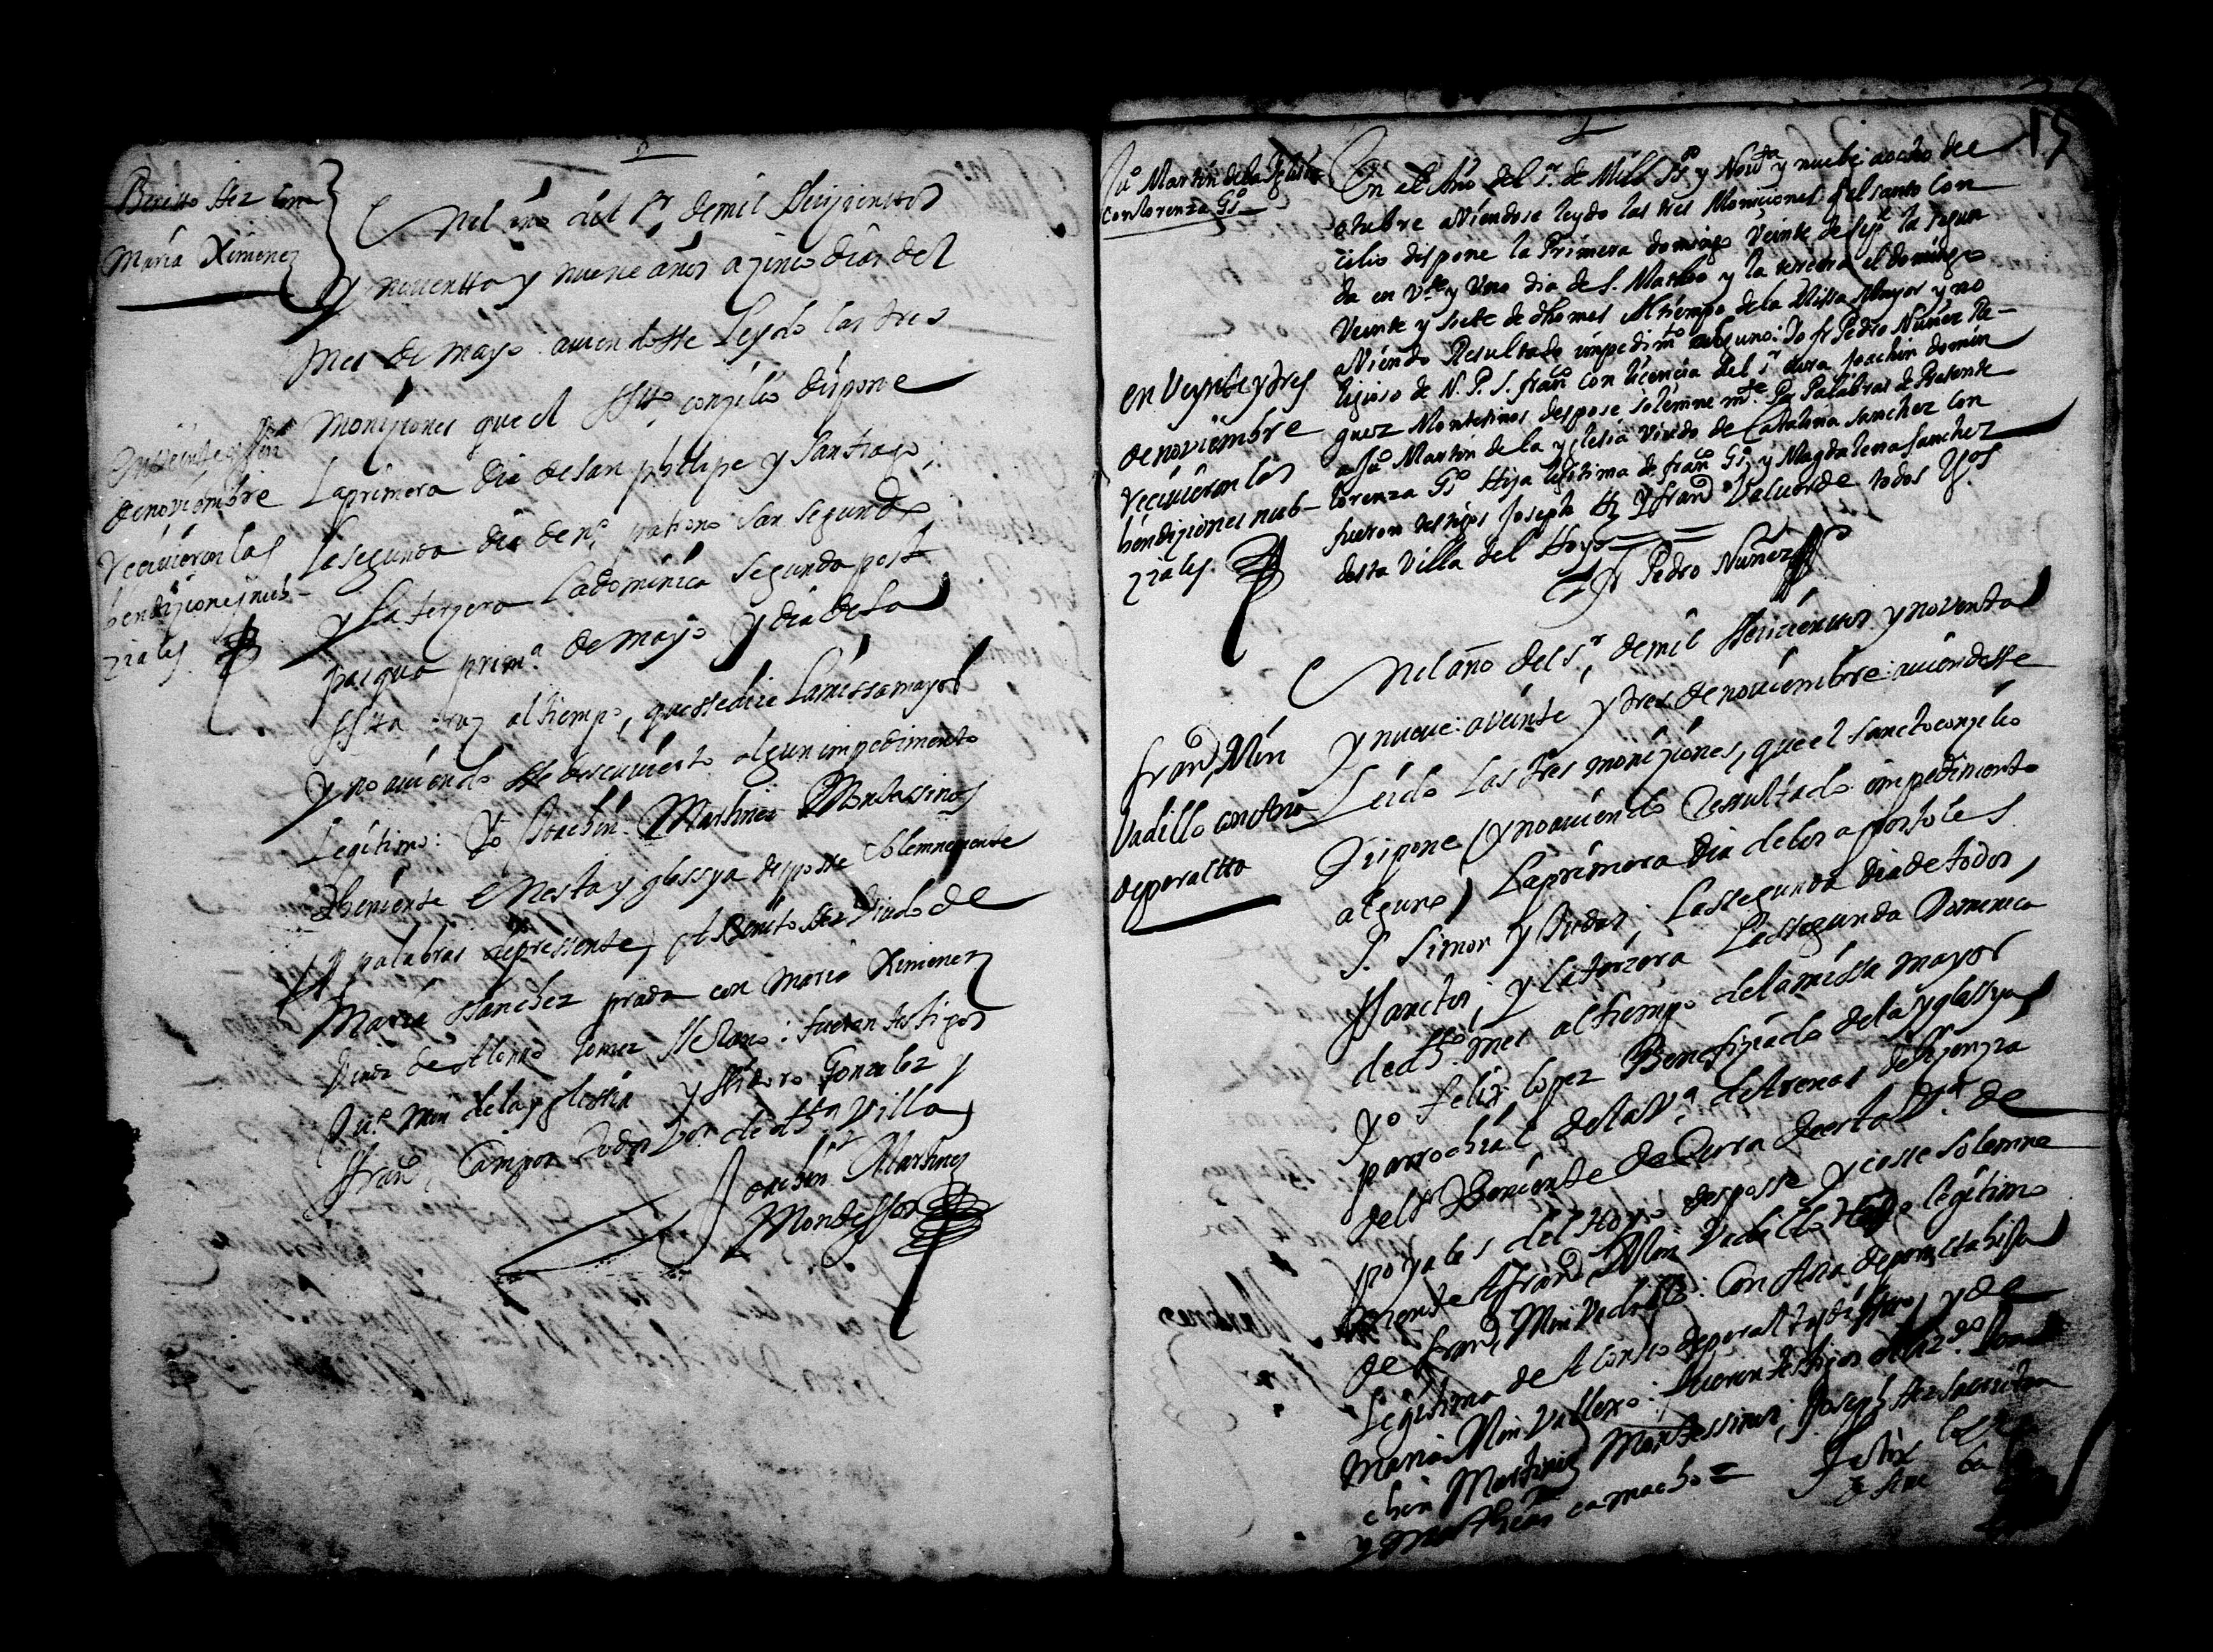 Benitto Hez con
Maria Ximenez
En el año del Sr. de mil Seiscientos
y noventta y nueve años a zinco dias del
mes de mayo aviendosse Leydo las tres
moniziones que el SSto. conzilio dispone
La primera dia de san phelipe y Santiago;
La segunda dia de no. patrono San Segundo
y La terzera La dominica segunda post
pasqua prima. de mayo y dia de La
SSta cruz al tiempo, que sse dice La missa mayor
y no aviendo sse descuvierto algun impedimento
Legitimo: Yo Joachin Martinez Montessinos
Theniente en esta yglessya desposse Solemnemente
por palabras de pressente, A Benito Hez Viudo de
Maria Sanchez prada con Maria Ximenez
Viuda de Alonso Gomez Serrano: fueron testigos
Juo. Min de la yglessia y Issidoro Gonzalez y
ffrano. Campos todos Vos. de dha Villa
Joachin Martinez
Montessos
En veinte y tres
de noviembre
recivieron las
bendiziones nub-
ziales.
15
Juo. Martin de la Iglesia
con Lorenza Gs.
En el Año del Sr. de Mill Sos. y Nobta y nuebe a ocho de
otubre aViendose leydo las tres Moniciones q el santo Con
cilio dispone la Primera domingo Veinte de Sepe. la segun
da en Vte y Uno dia de S. Matheo y la tercera el domingo
Veinte y Siete de dho mes Al tiempo de la Missa Mayor y no
aViendo Resultado impedimto alguno: Yo fr Pedro Nuñez Re-
ligioso de N. P. S. frano. Con licencia del Sr. Cura Joachin domin
guez Montesinos despose solemne mte. Por Palabras de Presente
a Juo Martin de la yglesia Viudo de Catalina Sanchez con
Lorenza Gs. Hija legitima de frano. Gs. y Magdalena Sanchez
fueron testigos Joseph Hz y frano. Valverde todos Vos.
desta Villa del Hoyo
Fr Pedro Nuñez
en Veynte y tres
de noviembre
recivieron las
bendiziones nub-
ziales.
frano. Min
Vadillo con Ana
de peraltta
En el año del Sr. de mil Seiscientos y noventa
y nueve: a veinte y tres de noviembre: aviendosse
Leido Las tres moniziones, que el sancto conzilio
Dispone (y no aviendo Ressultado impedimento
alguno) La primera dia de los apostoles
S. Simon y Judas; La segunda dia de todos
Sanctos; y la terzera La Segunda Dominica
de dho. mes al tiempo de la missa mayor
Yo Felix Lopez Benefiziado de la yglessya
parrochial desta Va. de Arenas de lizenzia
del Sr Theniente de Curra deesta Va. de
poyales del Hoyo desposse y casse solemne
mente A frano. Min Vadillo Hijo legitimo
de frano. Min Vadillo: Con Ana de peralta hija
Legitima de Alonsso de peralta, y de
Maria Min Vallexo: fueron testigos el Lizdo. Joa
chin Martinez Montessinos; Joseph Hez
y Mathias camacho =
Felix Lopez